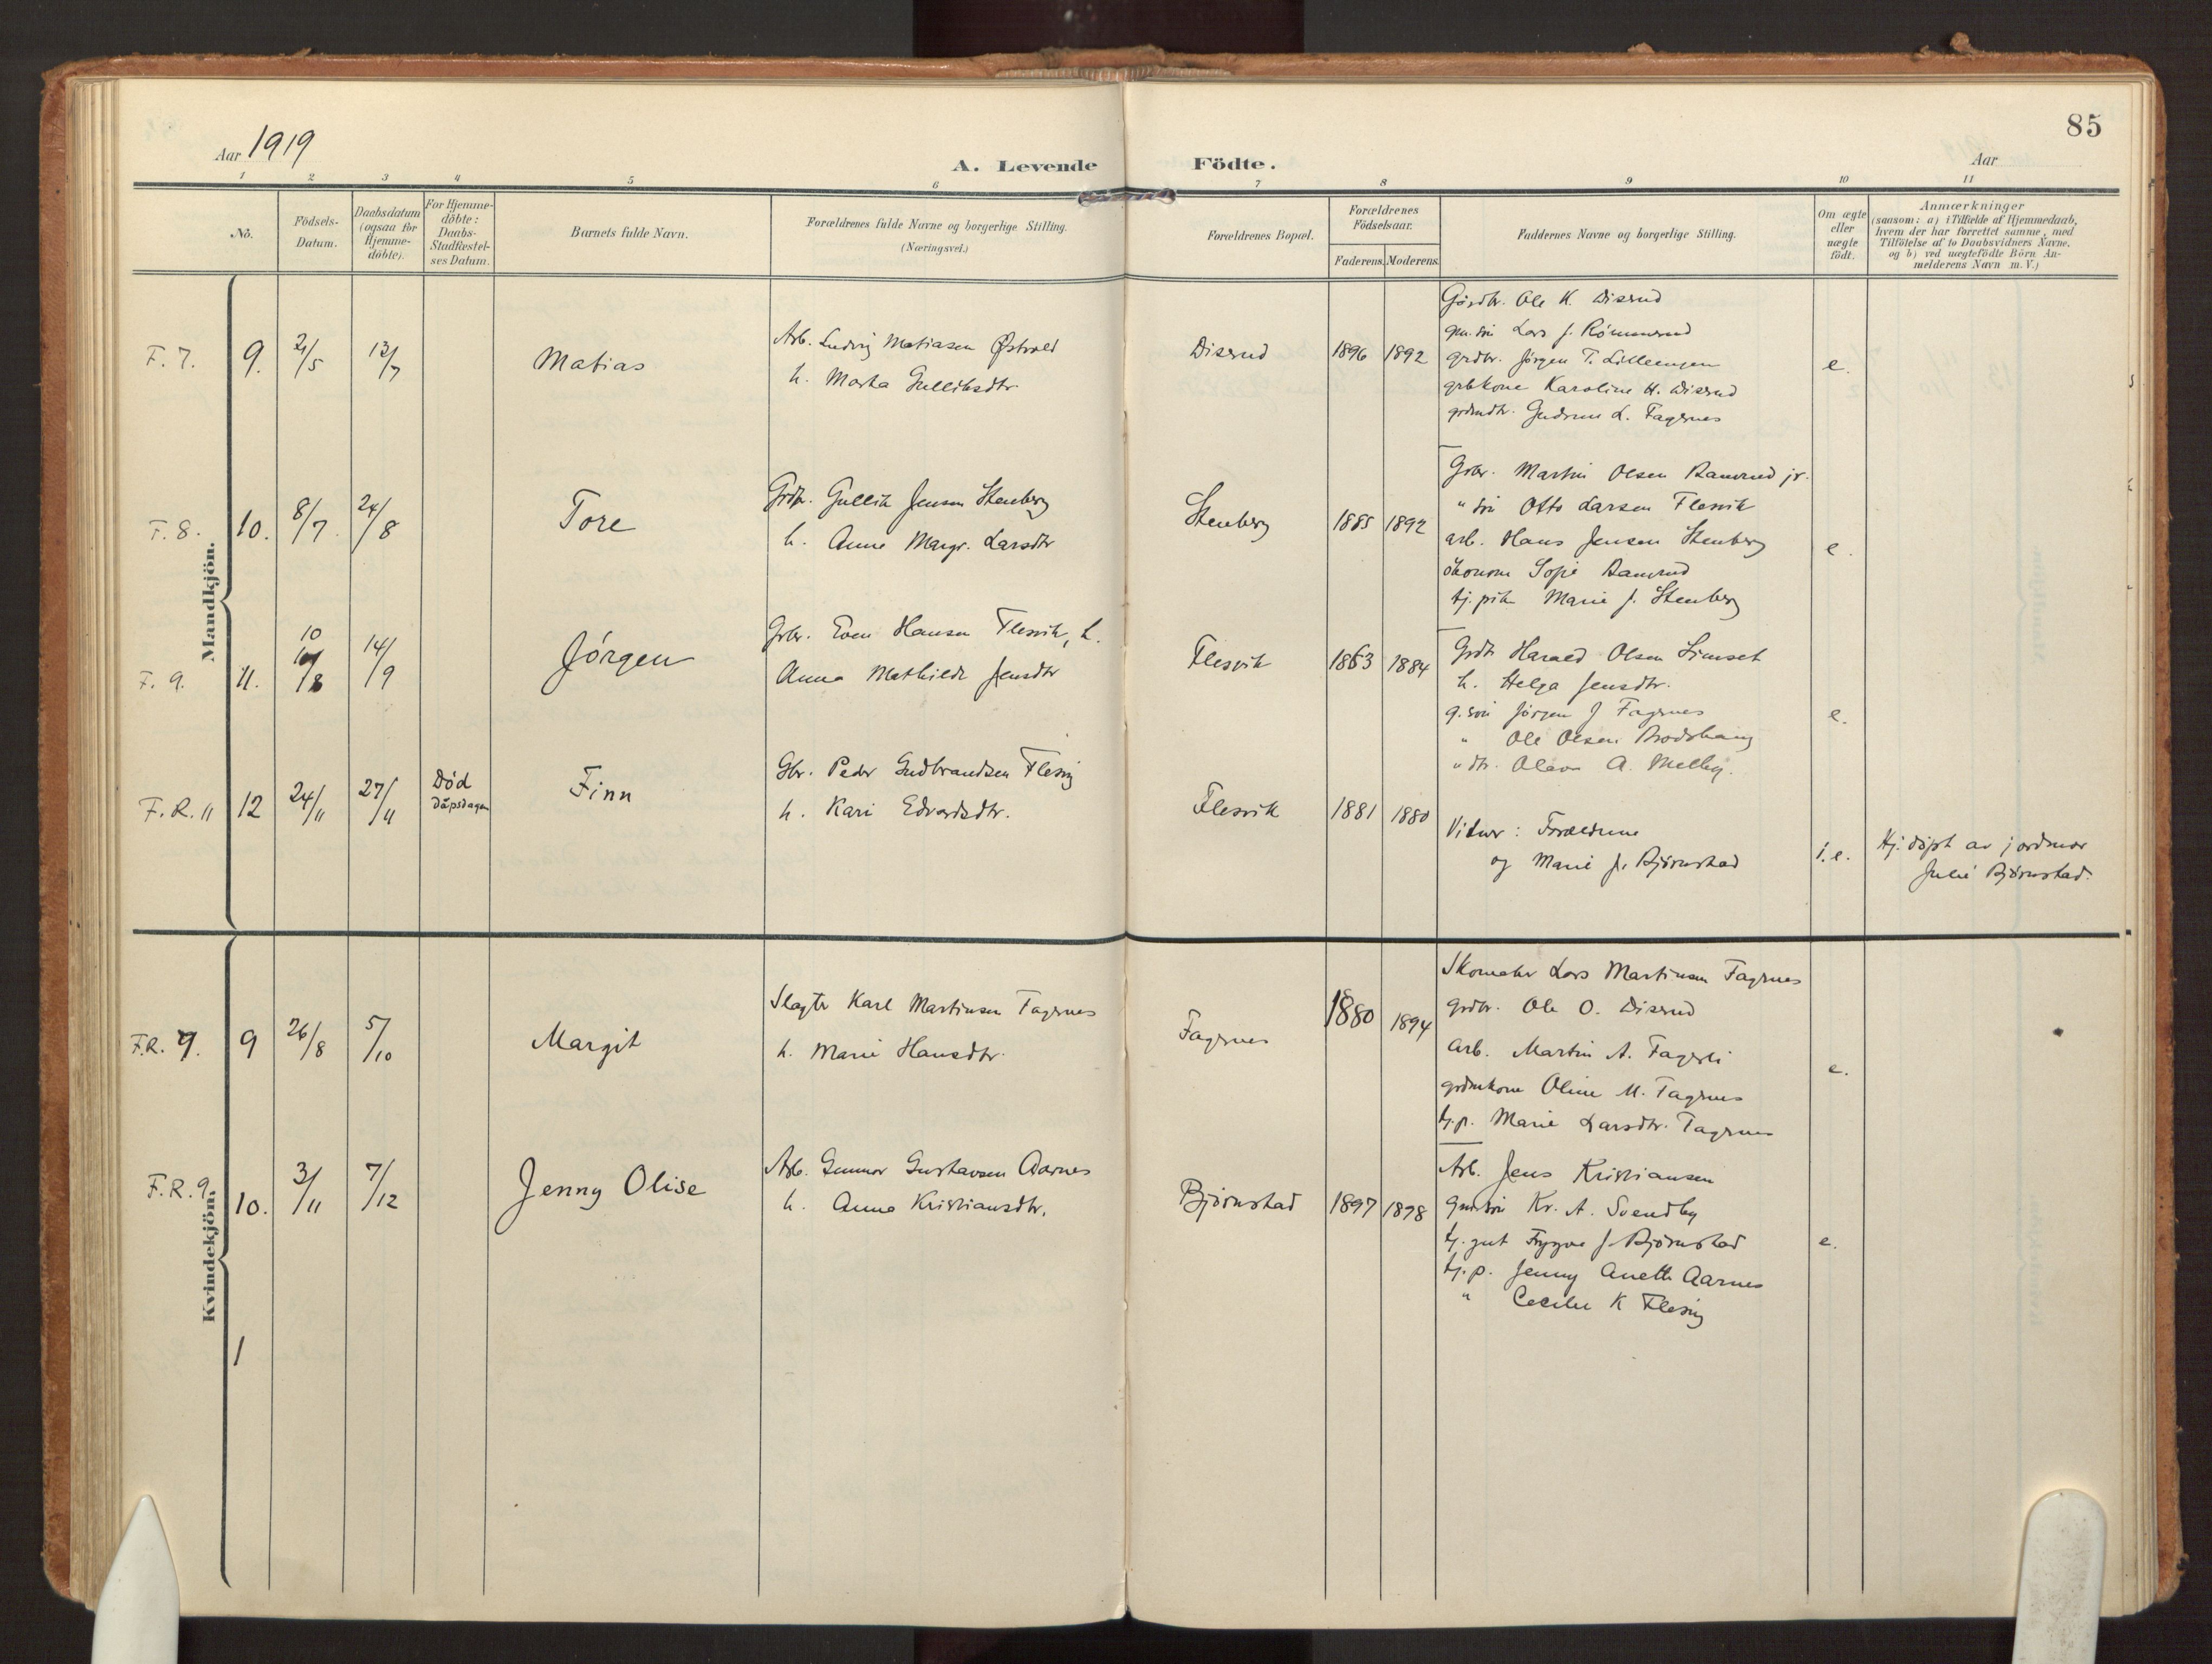 85
Aar 1919
A. Levende Födte.
Aar
1 2 3 4 5 6 7 8 9 10 11
No.
Födsels-Datum.
Daabsdatum (ogsaa for Hjemme-döbte).
For Hjemme-döbte: Daabs-Stadfæstel-ses Datum.
Barnets fulde Navn.
Forældrenes fulde Navne og borgerlige Stilling.
(Næringsvei.)
Forældrenes Bopæl.
Forældrenes Födselsaar.
Faderens. Moderens.
Faddernes Navne og borgerlige Stilling.
Om ægte eller uægte födt.
Anmærkninger
(saasom: a) i Tilfælde af Hjemmedaab,
hvem der har forrettet samme, med
Tilföielse af to Daabsvidners Navne,
og b) ved uægtefödte Börn An-
melderens Navn m. V.)
Mandkjön.
F. 7. 9. 21/5 13/7 Matias
Arb. Ludvig Matiasen Østvold
h. Marta Gulliksdtr.
Disrud 1896 1892
Gårdbr. Ole K. Disrud
gm. søn Lars J. Römmerud
grdbr. Jørgen T. Lilleengen
grbkone Karoline H. Disrud
grdmdtr. Gudrun L. Fagernes
e.
F. 8. 10. 8/7. 24/8 Tore
Grdbr. Gullik Jensen Stenberg
h. Anne Margr. Larsdtr
Stenberg 1885 1892
Grbr. Martin Olsen Ramsrud jr.
" søn Otto Larsen Flesvik
arb. Hans Jensen Stenberg
økonom Sofie Ramsrud
tj. pike Marie J. Stenberg
e.
F. 9. 11. 10/8 14/9 Jörgen
Grbr. Even Hansen Flesvik, h.
Anna Mathilde Jensdtr
Flesvik 1863 1884
Grdbr Harald Olsen Simset
h. Helga Jensdtr.
g. søn Jörgen J Fagernes
" Ole Olsen Brodshaug
" dtr. Olava A. Melby.
e.
F. R. 11 12 24/11 27/11 Død Dåpsdagen Finn
Gbr. Peder Gudbrandsen Flesvig
h. Kari Edvardsdtr.
Flesvik 1881 1880
Vitner: Forældrene
og Marie J. Bjørnstad
i. e.
Hj. døpt av jordmor
Julie Bjørnstad.
Kvindekjön.
F.R. 9. 9 26/8 5/10 Margit
Slagter Karl Martinsen Fagernes
h. Marie Hansdtr.
Fagernes 1880 1894
Skomaker Lars Martinsen Fagernes
grdbr. Ole O. Disrud
arb. Martin A. Fagerli
grdmkone Oline M. Fagernes
tj. p. Marie Larsdtr. Fagernes
e.
F. R. 9. 10. 3/11 7/12 Jenny Olise
Arb. Gunnar Gustavsen Aarnes
h. Anna Kristiansdtr.
Bjørnstad 1897 1898
Arb. Jens Kristiansen
gm. søn Kr. A. Svendby
tj. gut Trygve J. Bjørnstad
tj. p. Jenny Anette Aarnes
" Cecilie K Flesvig
e.
1